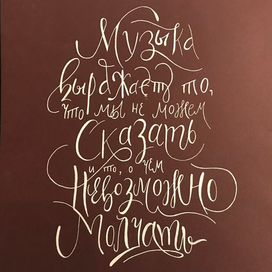 Музыка
выражает то,
что мы не можем
Сказать
и то, о чем
Невозможно
Молчать